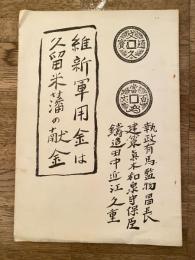 維新軍用金は
久留米藩の献金
執政有馬監物昌長
建築真木和泉守保臣
鋳造田中近江久重